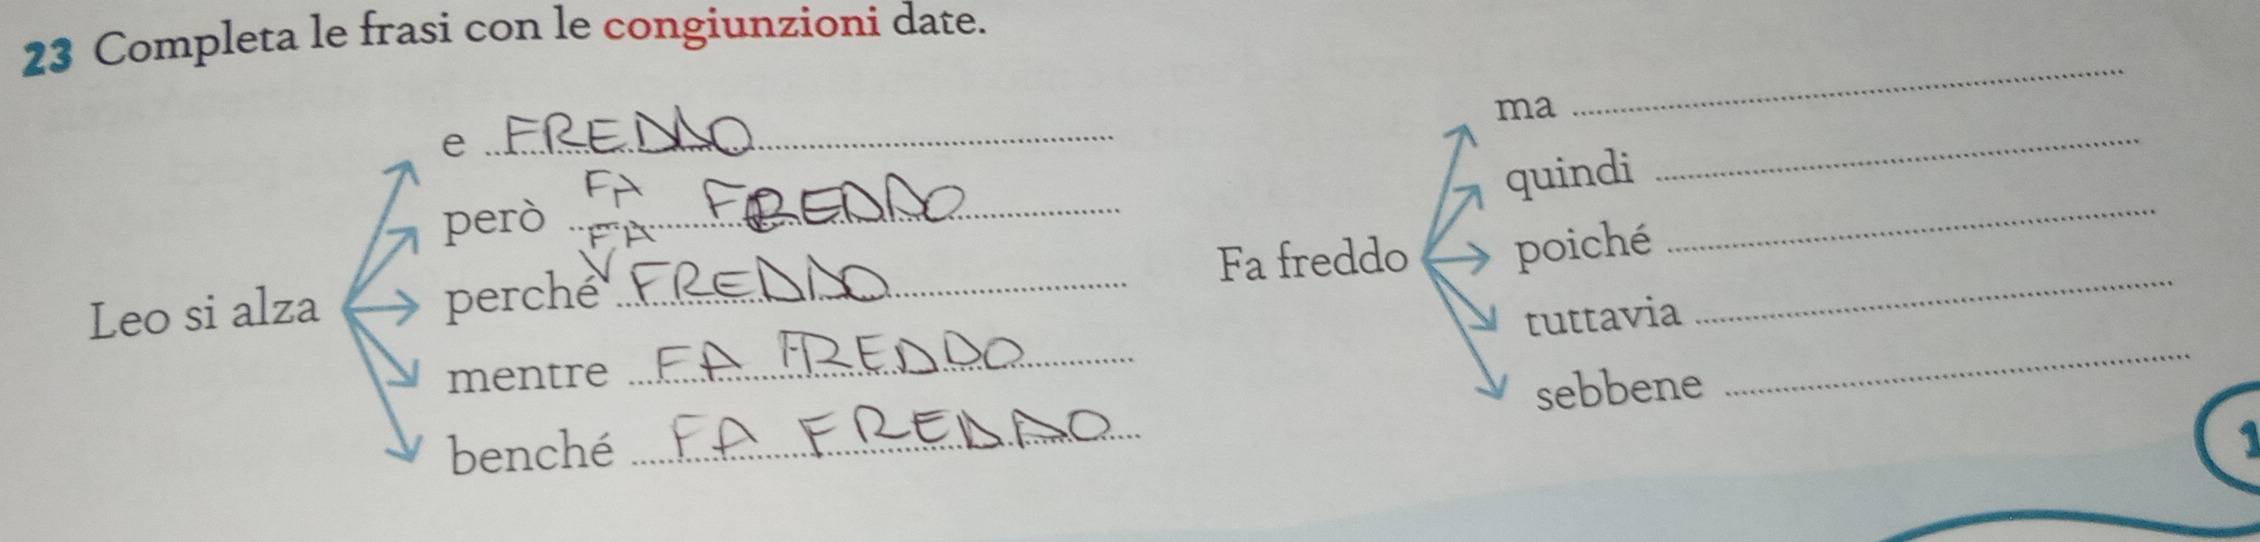 23 Completa le frasi con le congiunzioni date.
Leo si alza
e FREDDO
però FA FREDDO
FA
perché FREDDO
mentre FA FREDDO
benché FA FREDDO
Fa freddo
ma
quindi
poiché
tuttavia
sebbene
1